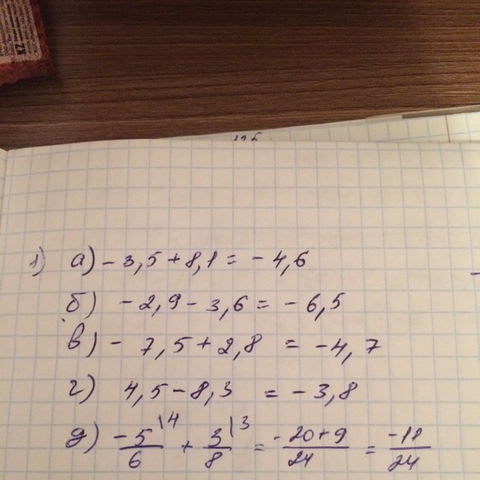 1) а) - 3,5 + 8,1 = - 4,6
б) - 2,9 - 3,6 = - 6,5
в) - 7,5 + 2,8 = - 4,7
г) 4,5 - 8,3 = - 3,8
д) -5/6 \4 + 3/8 \3 = -20+9/24 = -11/24